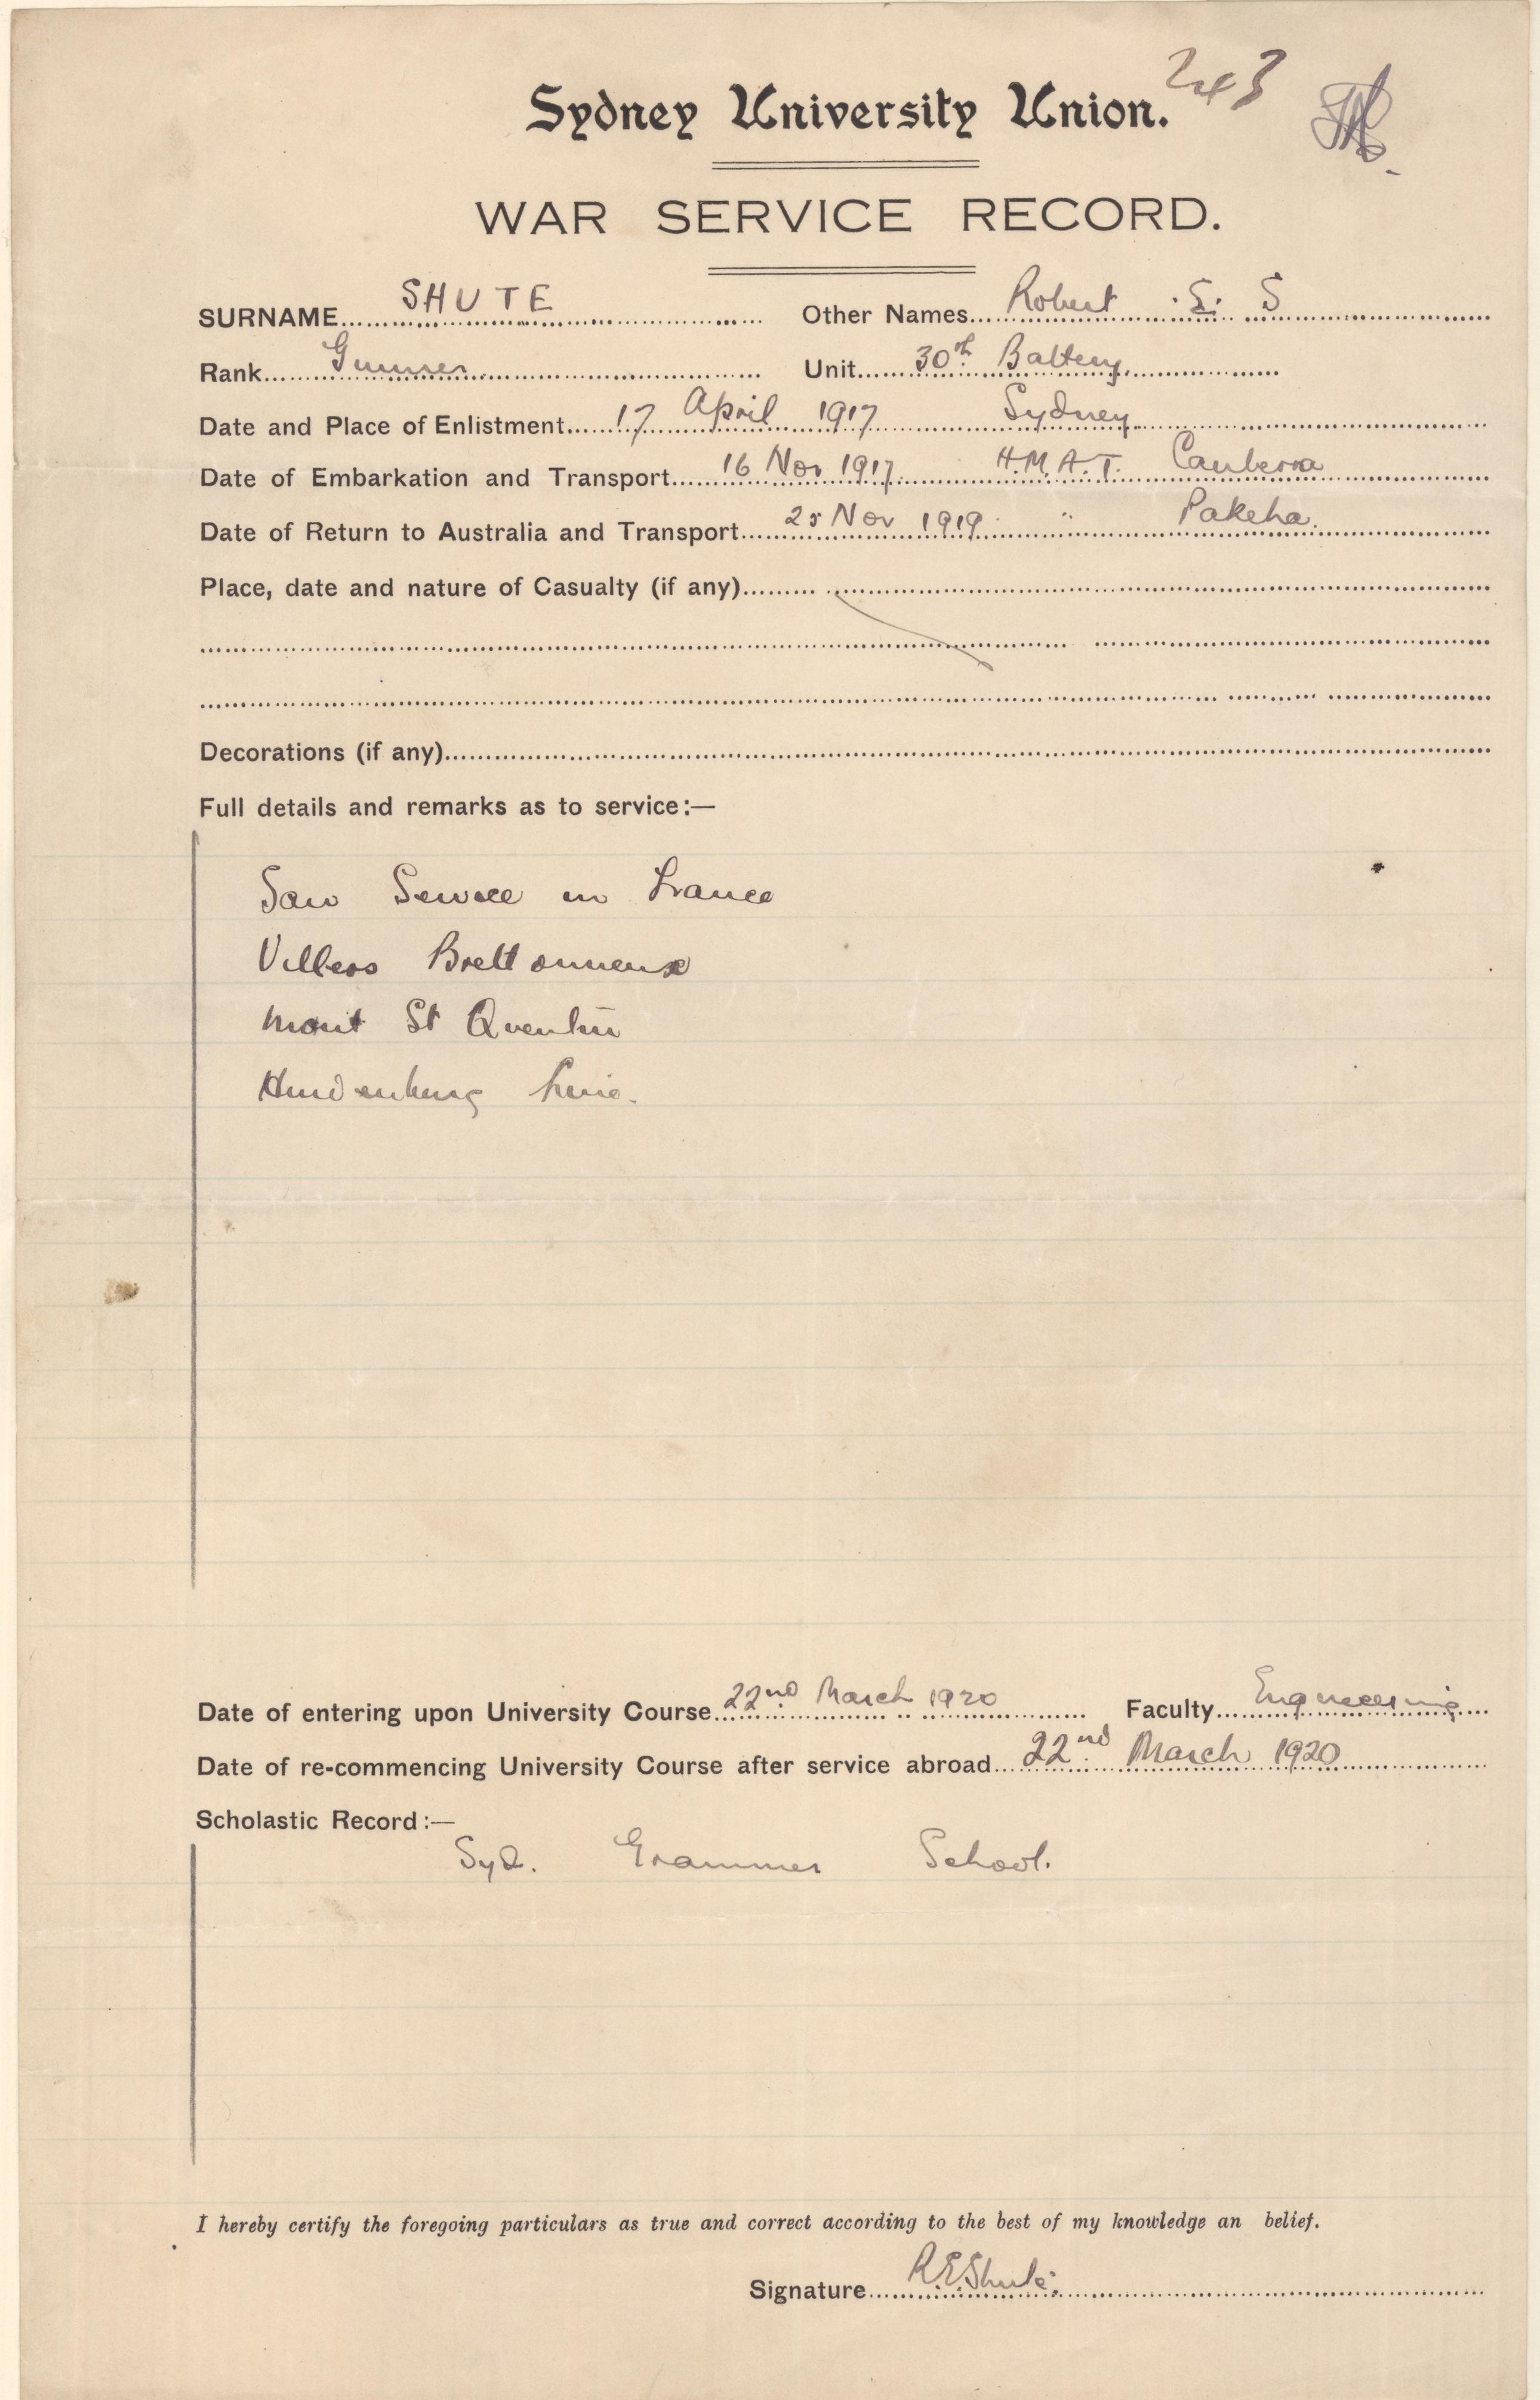 243
Sydney University Union.
WAR SERVICE RECORD.
SURNAME SHUTE Other Names Robert S. S
Rank Gunner Unit 30th Battery
Date and Place of Enlistment 17 April 1917 Sydney
Date of Embarkation and Transport 16 Nov 1917 H.M.A.T. Canberra
Date of Return to Australia and Transport 25 Nov 1919 " Pakeha.
Place, date and nature of Casualty (if any)
Decorations (if any)
Full details and remarks as to service:—
Saw Service in France
Villers Brettonneux
Mont St Quentin
Hindenburg Line.
Date of entering upon University Course 22nd March 1920 Faculty Engineering
Date of re-commencing University Course after service abroad 22nd March 1920
Scholastic Record:—
Syd. Grammer School.
I hereby certify the foregoing particulars as true and correct according to the best of my knowledge an belief.
Signature R.E. Shute.